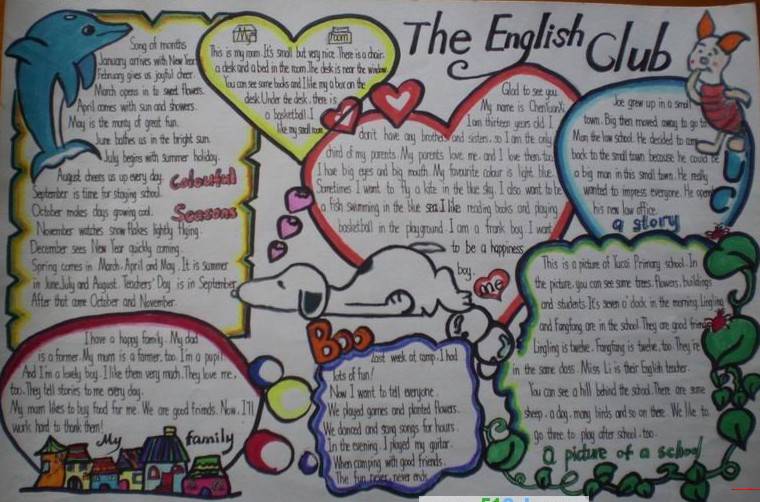 The English Club
Song of months
January arrives with New Year
February gives us joyful cheer.
March opens in to sweet flowers.
April comes with sun and showers.
May is the munty of great fun.
June bathes us in the bright sun.
July begins with summer holiday.
August cheers us up every day.
September is time for staying school.
October makes days growing cool.
November watchs snow flakes lightly flying.
December sees New Year quickly coming.
Spring comes in March, April and May. It is summer
in June, July and August. Teachers' Day is in September
After that come October and November.
Colourful
Seasons
My room
This is my room. It's small but very nice. There is a chair,
a desk and a bed in the room. The desk is near the window
You can see some books and I like my a box on the
desk. Under the desk, there is
a basketball. I
like my small room
Glad to see you.
My name is ChenYuanXi
I am thirteen years old. I
don't have any brothers and sisters, so I am the only
child of my parents. My parents love me, and I love them, too.
I have big eyes and big mouth. My favourite colour is light blue.
Sometimes I want to fly a kite in the blue sky. I also want to be
a fish swimming in the blue sea. I like reading books and playing
basketball in the playground. I am a frank boy. I want
to be a happiness
boy.
me
Joe grew up in a small
town. Big then moved away to go to
Mon the law school. He decided to come
back to the small town because he could be
a big man in this small town. He really
wanted to impress everyone. He opened
his new law office.
a story
I have a happy family. My dad
is a farmer. My mum is a farmer, too. I'm a pupil.
And I'm a lovely boy. I like them very much. They love me,
too. They tell stories to me every day.
My mum likes to buy food for me. We are good friends. Now, I'll
work hard to thank them!
My family
Boo
Last week at camp, I had
lots of fun!
Now I want to tell everyone.
We played games and planted flowers.
We danced and sang songs for hours.
In the evening, I played my guitar.
When camping with good friends.
The fun never, never ends.
This is a picture of Yucai Primary school. In
the picture, you can see some trees, flowers, buildings
and students. It's seven o'clock in the morning. Lingling
and Fangfang are in the school. They are good friends
Lingling is twelve. Fangfang is twelve, too. They're
in the same class. Miss Li is their English teacher.
You can see a hill behind the school. There are some
sheep, a dog, many birds and so on there. We like to
go there to play after school, too.
a picture of a school